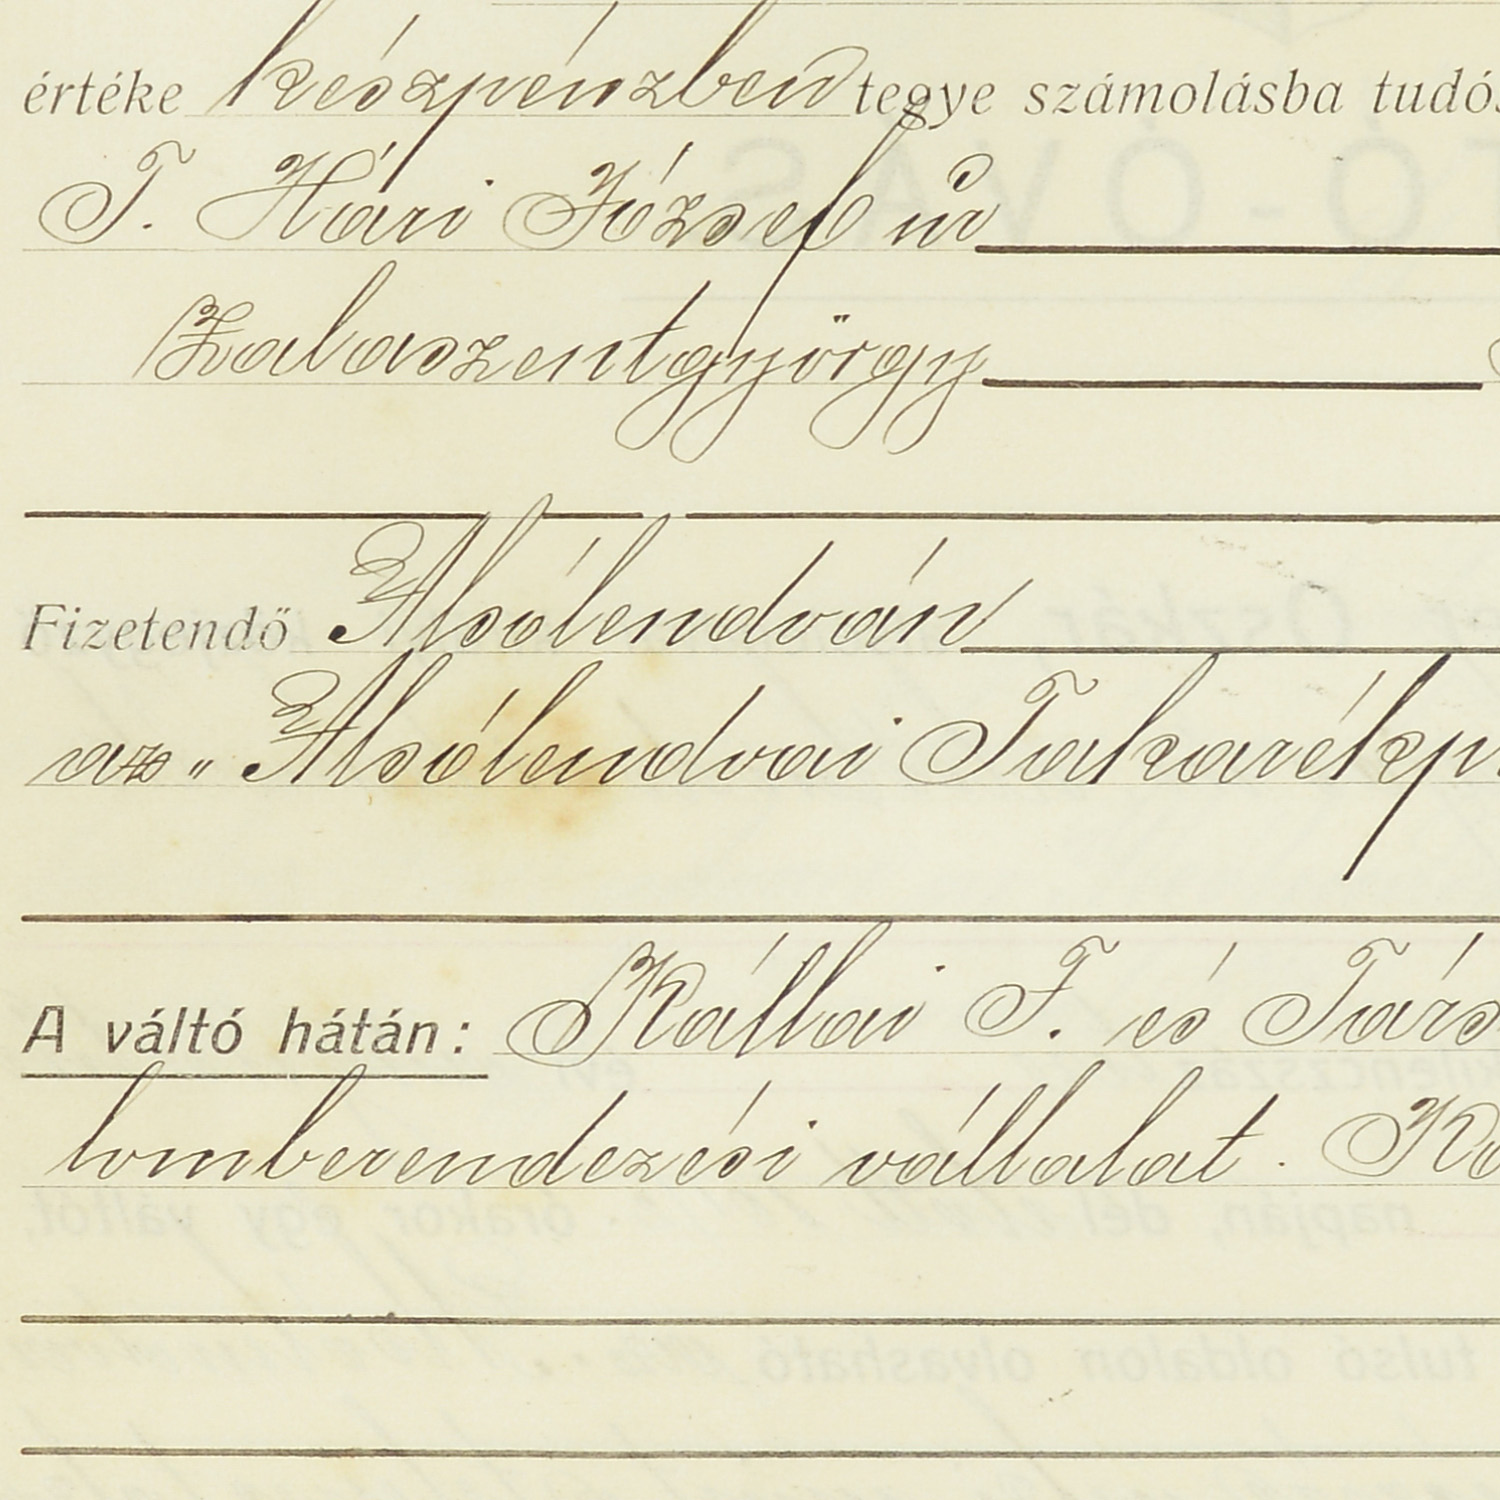 értéke készpénzben tegye számolásba tudós
T. Hári József úr
Zalaszentgyörgy
Fizetendő Alsólendván
az „Alsólendvai Takarékp
A váltó hátán: Kállai F. és Társ
lomberendezési vállalat. Ka